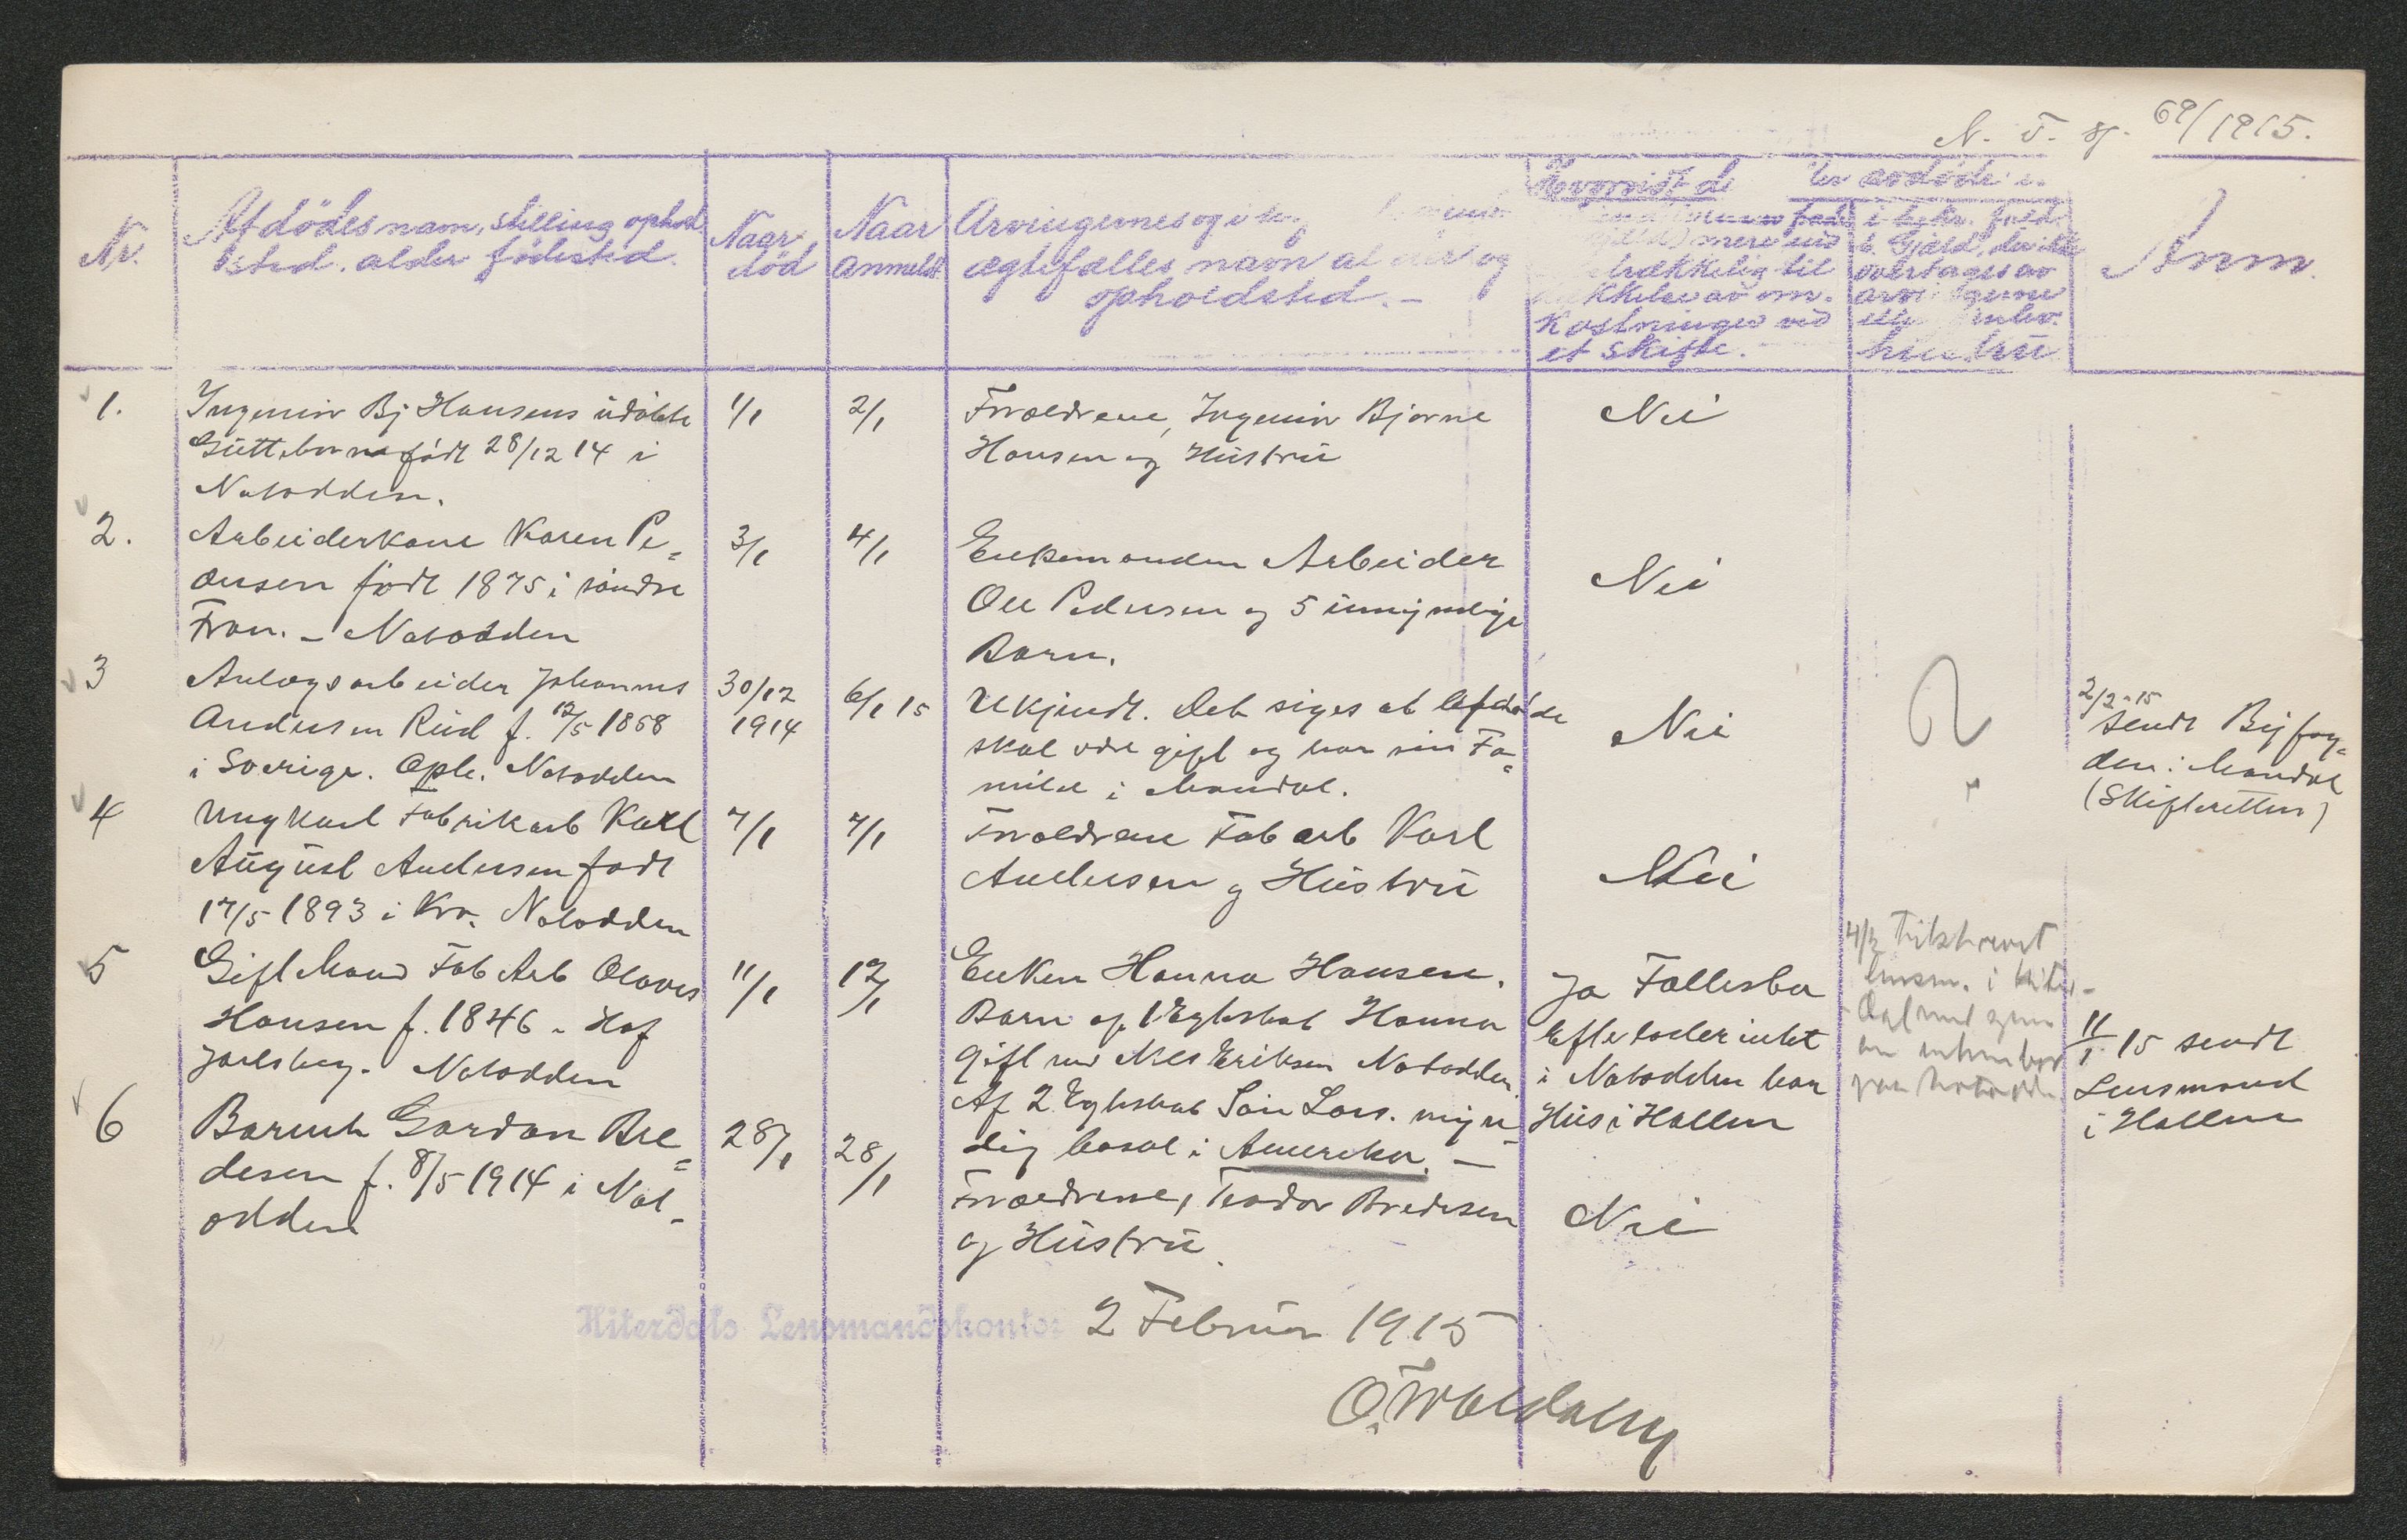 N. T. sj. 69/1915.
Nr.
Afdödes navn, stilling ophold
sted. alder födested.
Naar
död
Naar
anmeldt.
Arvingernes og i
ægtefælles navn al og
opholdsted. -
Hvorvidt de
mere end
trækkelig til
av om-
kostninger ved
et skifte.
Er avdöde
i bekr. fald
Gjæld, der ikke
overtages av
arvingerne
eller
hustru
Anm.
1.
Ingeniör Bj Hansens udöbte
Guttebarn født 28/12 14 i
Notodden.
1/1
2/1
Forældrene, Ingeniör Bjarne
Hansen og Hustru
Nei
2.
Arbeiderkone Karen Pe=
dersen født 1875 i söndre
Fron. - Notodden
3/1
4/1
Enkemanden Arbeider
Ole Pedersen og 5 umyndige
Barn.
Nei
3
Anlægsarbeider Johannes
Andersen Rud f. 12/5 1868
i Sverige. Oph. Notodden
30/12
1914
6/1 15
Ukjendt. Det siges at afdøde
skal være gift og har sin Fa=
milie i Mandal.
Nei
2/2-15
sendt Byfog=
den i Mandal
(Skifteretten)
4
Ungkarl Fabrikarb Karl
August Andersen født
17/5 1893 i Kra. Notodden
7/1
7/1
Forældrene Fab arb Karl
Andersen og Hustru
Nei
5
Gift Mand Fab Arb Olaves
Hansen f. 1846 - Hof
Jarlsberg. Notodden
11/1
12/1
Enken Hanna Hansen.
Barn af 1 Egteskab Hanna
gift med Nils Eriksen Notodden
Af 2 Egteskab Sön Lars. myn-
dig bosat i Amerika. -
Ja Fællesbo
Efterlader intet
i Notodden har
Hus i Hollen
4/2 Tilskrevet
lensm. i Hiter-
dal
11/1 15 sendt
Lensmand
i Hollen
6
Barnet Gordon Bre=
desen f. 8/5 1914 i Not-
odden
28/1
28/1
Forældrene, Teodor Bredesen
og Hustru.
Nei
Hiterdals Lensmandskontor 2 Februar 1915